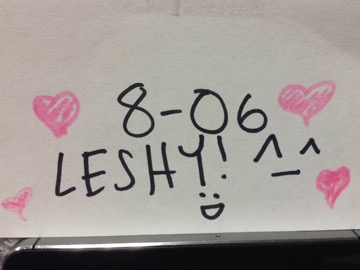 8-06
LESHY! ^_^